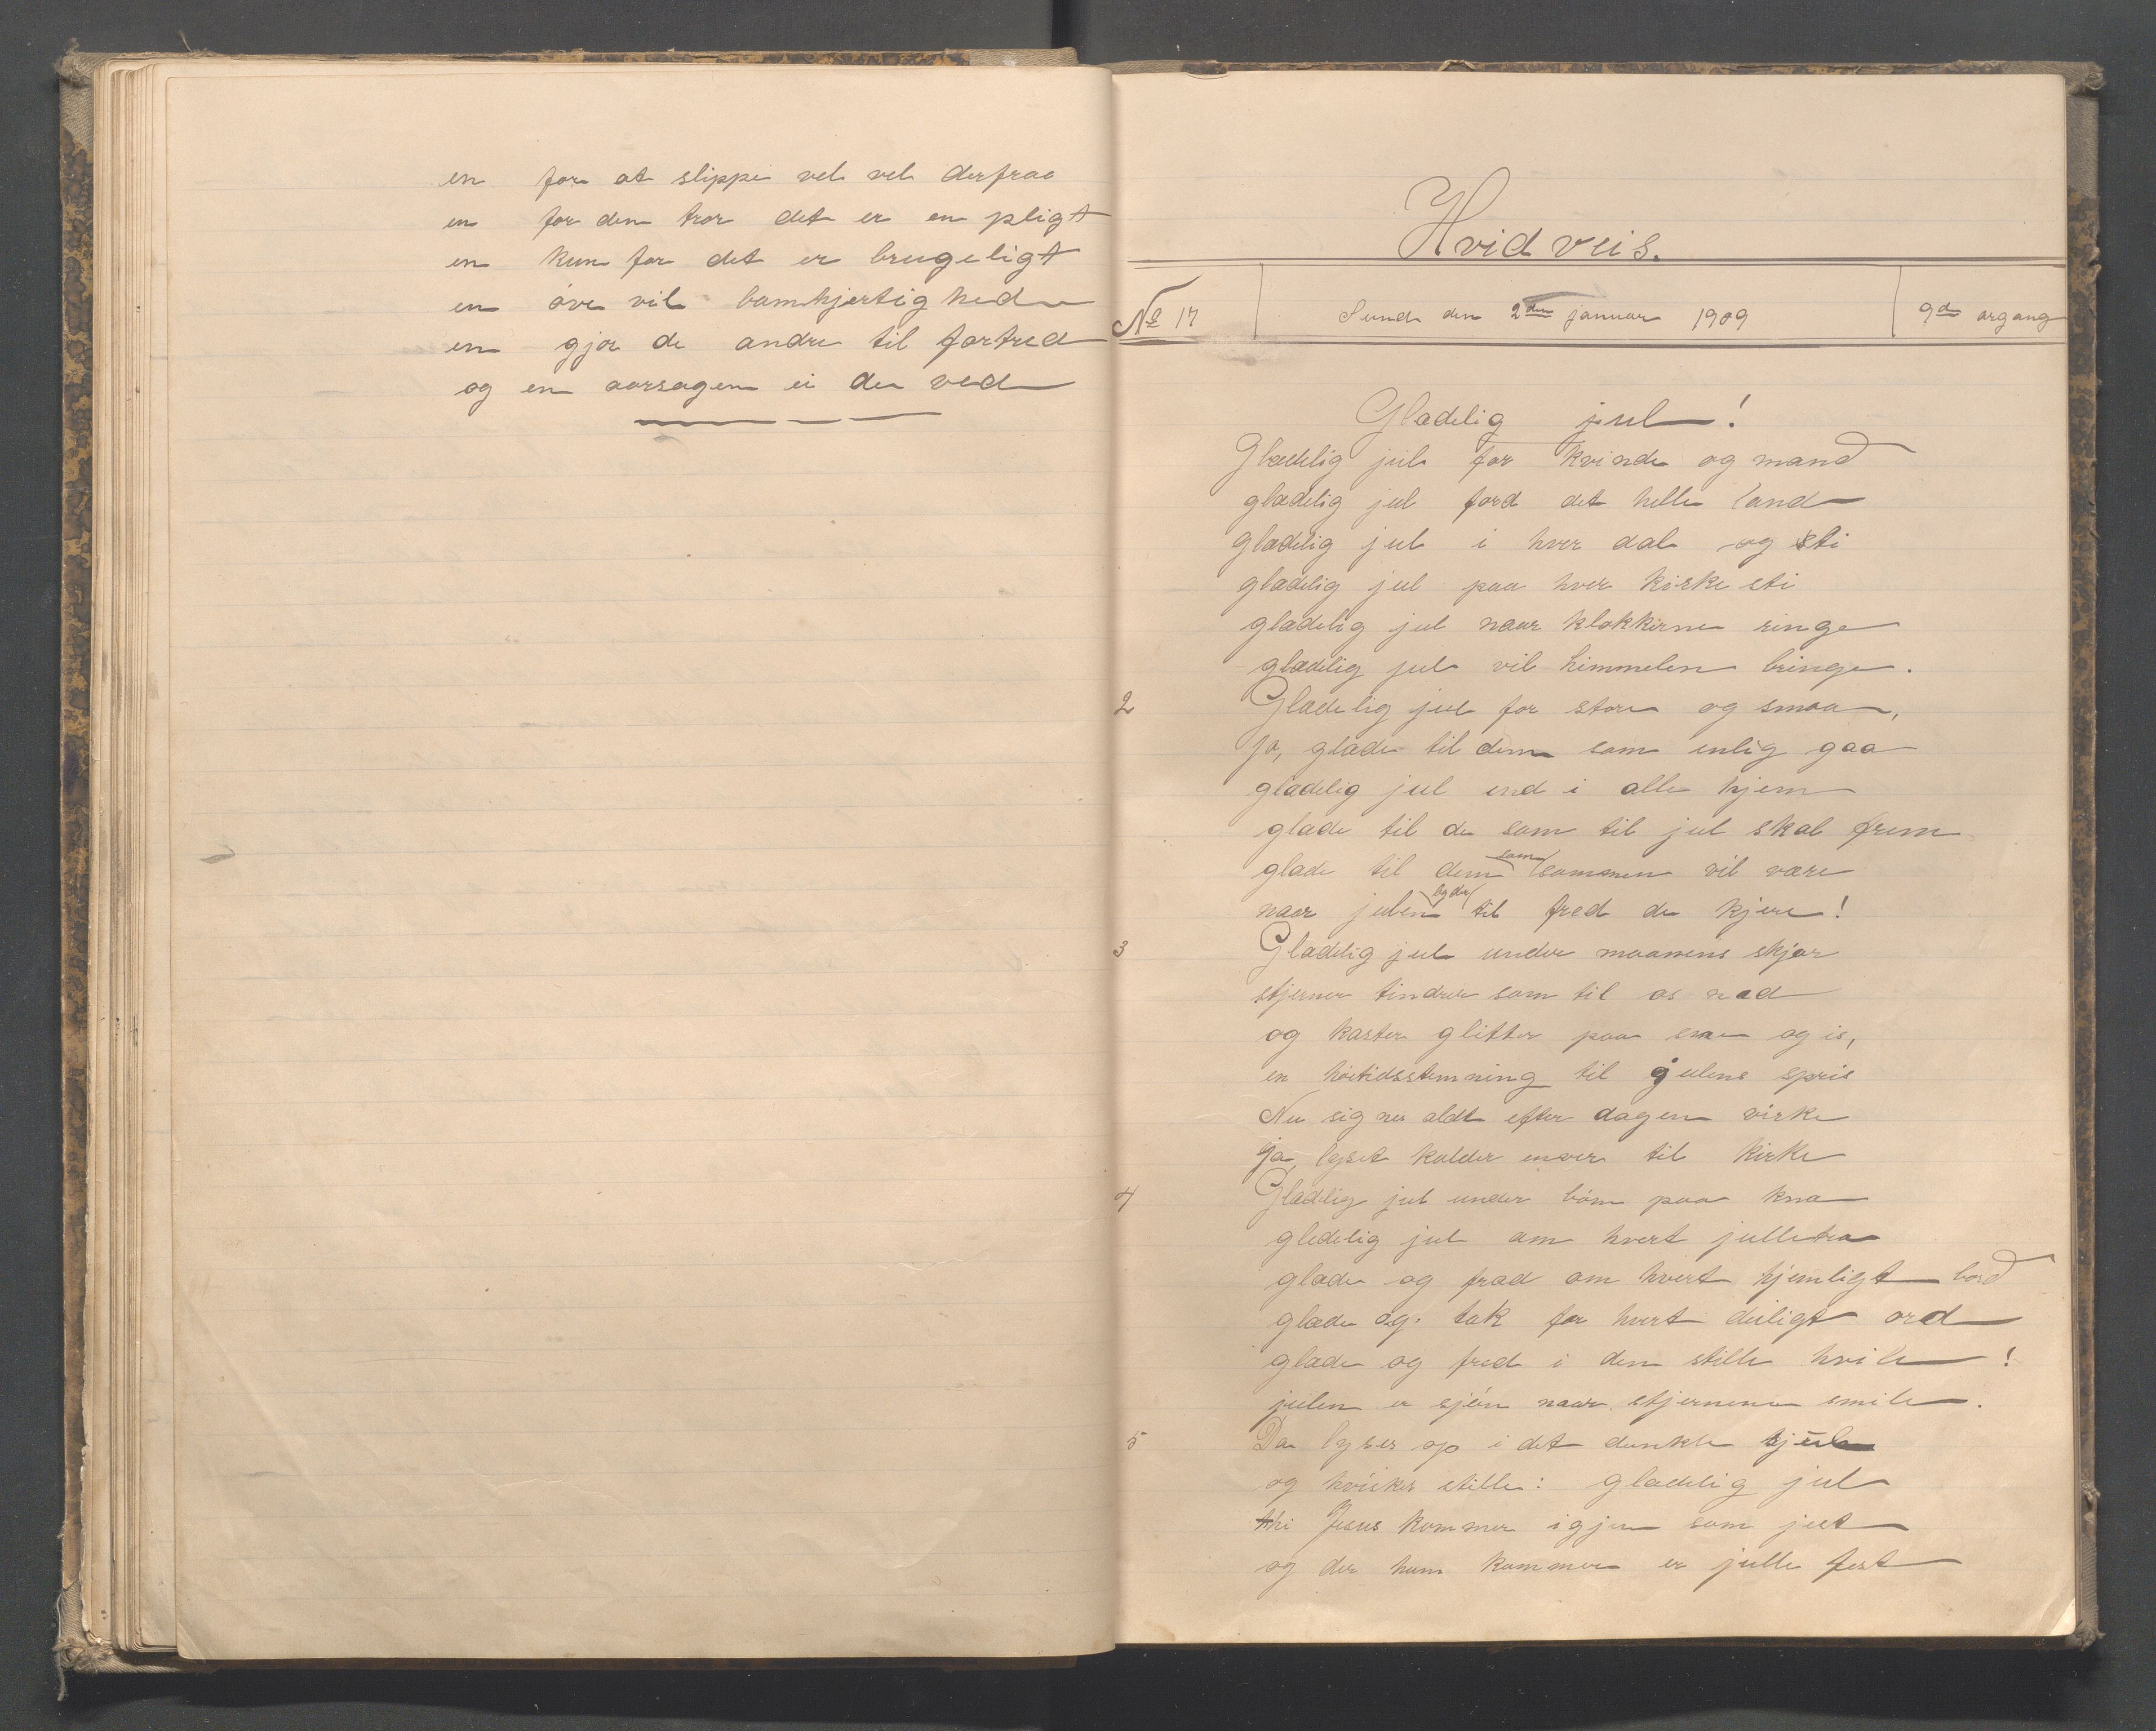 en for at slippe vel vel derfraa
en for den tror det er en pligt
en kun for det er brugeligt
en øve vil barmhjertighed
en gjør de andre til fortred
og en aarsagen ei der ved
Hvidveis.
No 17 Sund den 2den januar 1909 9de argang
Glædelig jul!
Glædelig jul for kvinde og mand
glædelig jul ford det helle land
glædelig jul i hver dal og sti
glædelig jul paa hver kirke sti
glædelig jul naar klokkerne ringe
glædelig jul vil himmelen bringe.
2 Glædelig jul for store og smaa,
Ja, glæde til dem som enlig gaa
glædelig jul end i alle hjem
glæde til de som til jul skal frem
glæde til dem som sammen vil være
naar julen byder til fred de kjere!
3 Glædelig jul under maanens skjær
stjerner tindrer som til os ned
og kaster glitter paa sne og is,
en høitidsstemning til julens pris
Nu signer aldt efter dagen virke
ja, lyset kalder enver til kirke
4 Glædelig jul under børn paa knæ
gledelig jul om hvert julletræ
glæde og fræd om hvert hjemligt bord
glæde og tak for hvert deiligt ord
glæde og fred i den stille hvile!
julen er sjøn naar stjernene smile.
5 Da lyser op i det dunkle hjul
og hvisker stille: glædelig jul
thi Jesus kommer igjen som jest
og der han kommer er julle fest